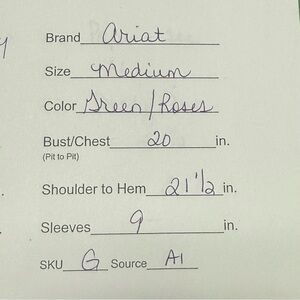 Brand Ariat
Size Medium
Color Green/Roses
Bust/Chest 20 in.
(Pit to Pit)
Shoulder to Hem 21 1/2 in.
Sleeves 9 in.
SKU G Source A1